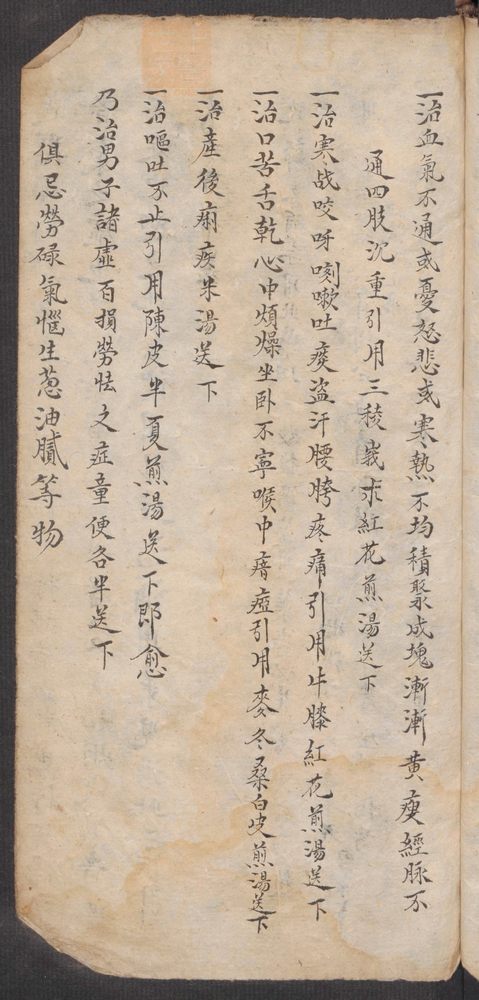 一治血氣不通或憂怒悲或寒熱不均積聚成塊漸漸黄瘦經脉不
通四肢沉重引用三稜莪朮紅花煎湯送下
一治寒战咬呀咳嗽吐痰盗汗腰胯疼痛引用牛膝紅花煎湯送下
一治口苦舌乾心中煩燥坐卧不寧喉中瘖瘂引用麥冬桑白皮煎湯送下
一治產後痢疾米湯送下
一治嘔吐不止引用陳皮半夏煎湯送下即愈
乃治男子諸虛百損勞怯之症童便各半送下
俱忌勞碌氣惱生葱油膩等物